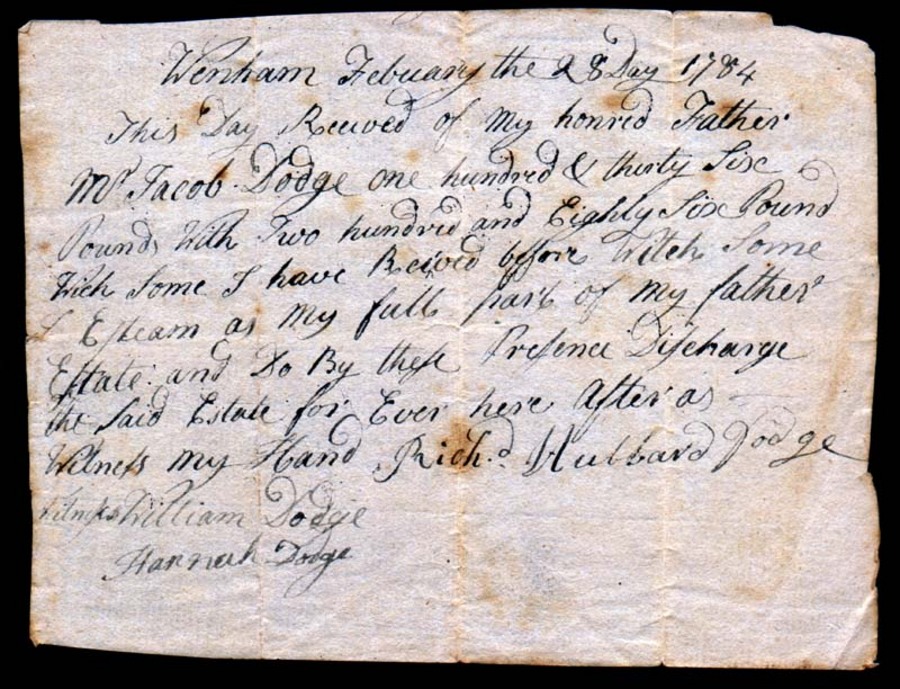 Wenham Febuary the 28 Day 1784
This Day Received of my honred Father
Mr Jacob Dodge one hundred & thirty Six
Pounds With Two hundred and Eighty Six Pound
Wich Some I have Reeived before Witch Some
I Esteam as my full part of my father
Estate and Do By these Presence Discharge
the Said Estate for Ever here After as
Witness my Hand Richd Hubbard Dodge
witness William Dodge
Hannah Dodge